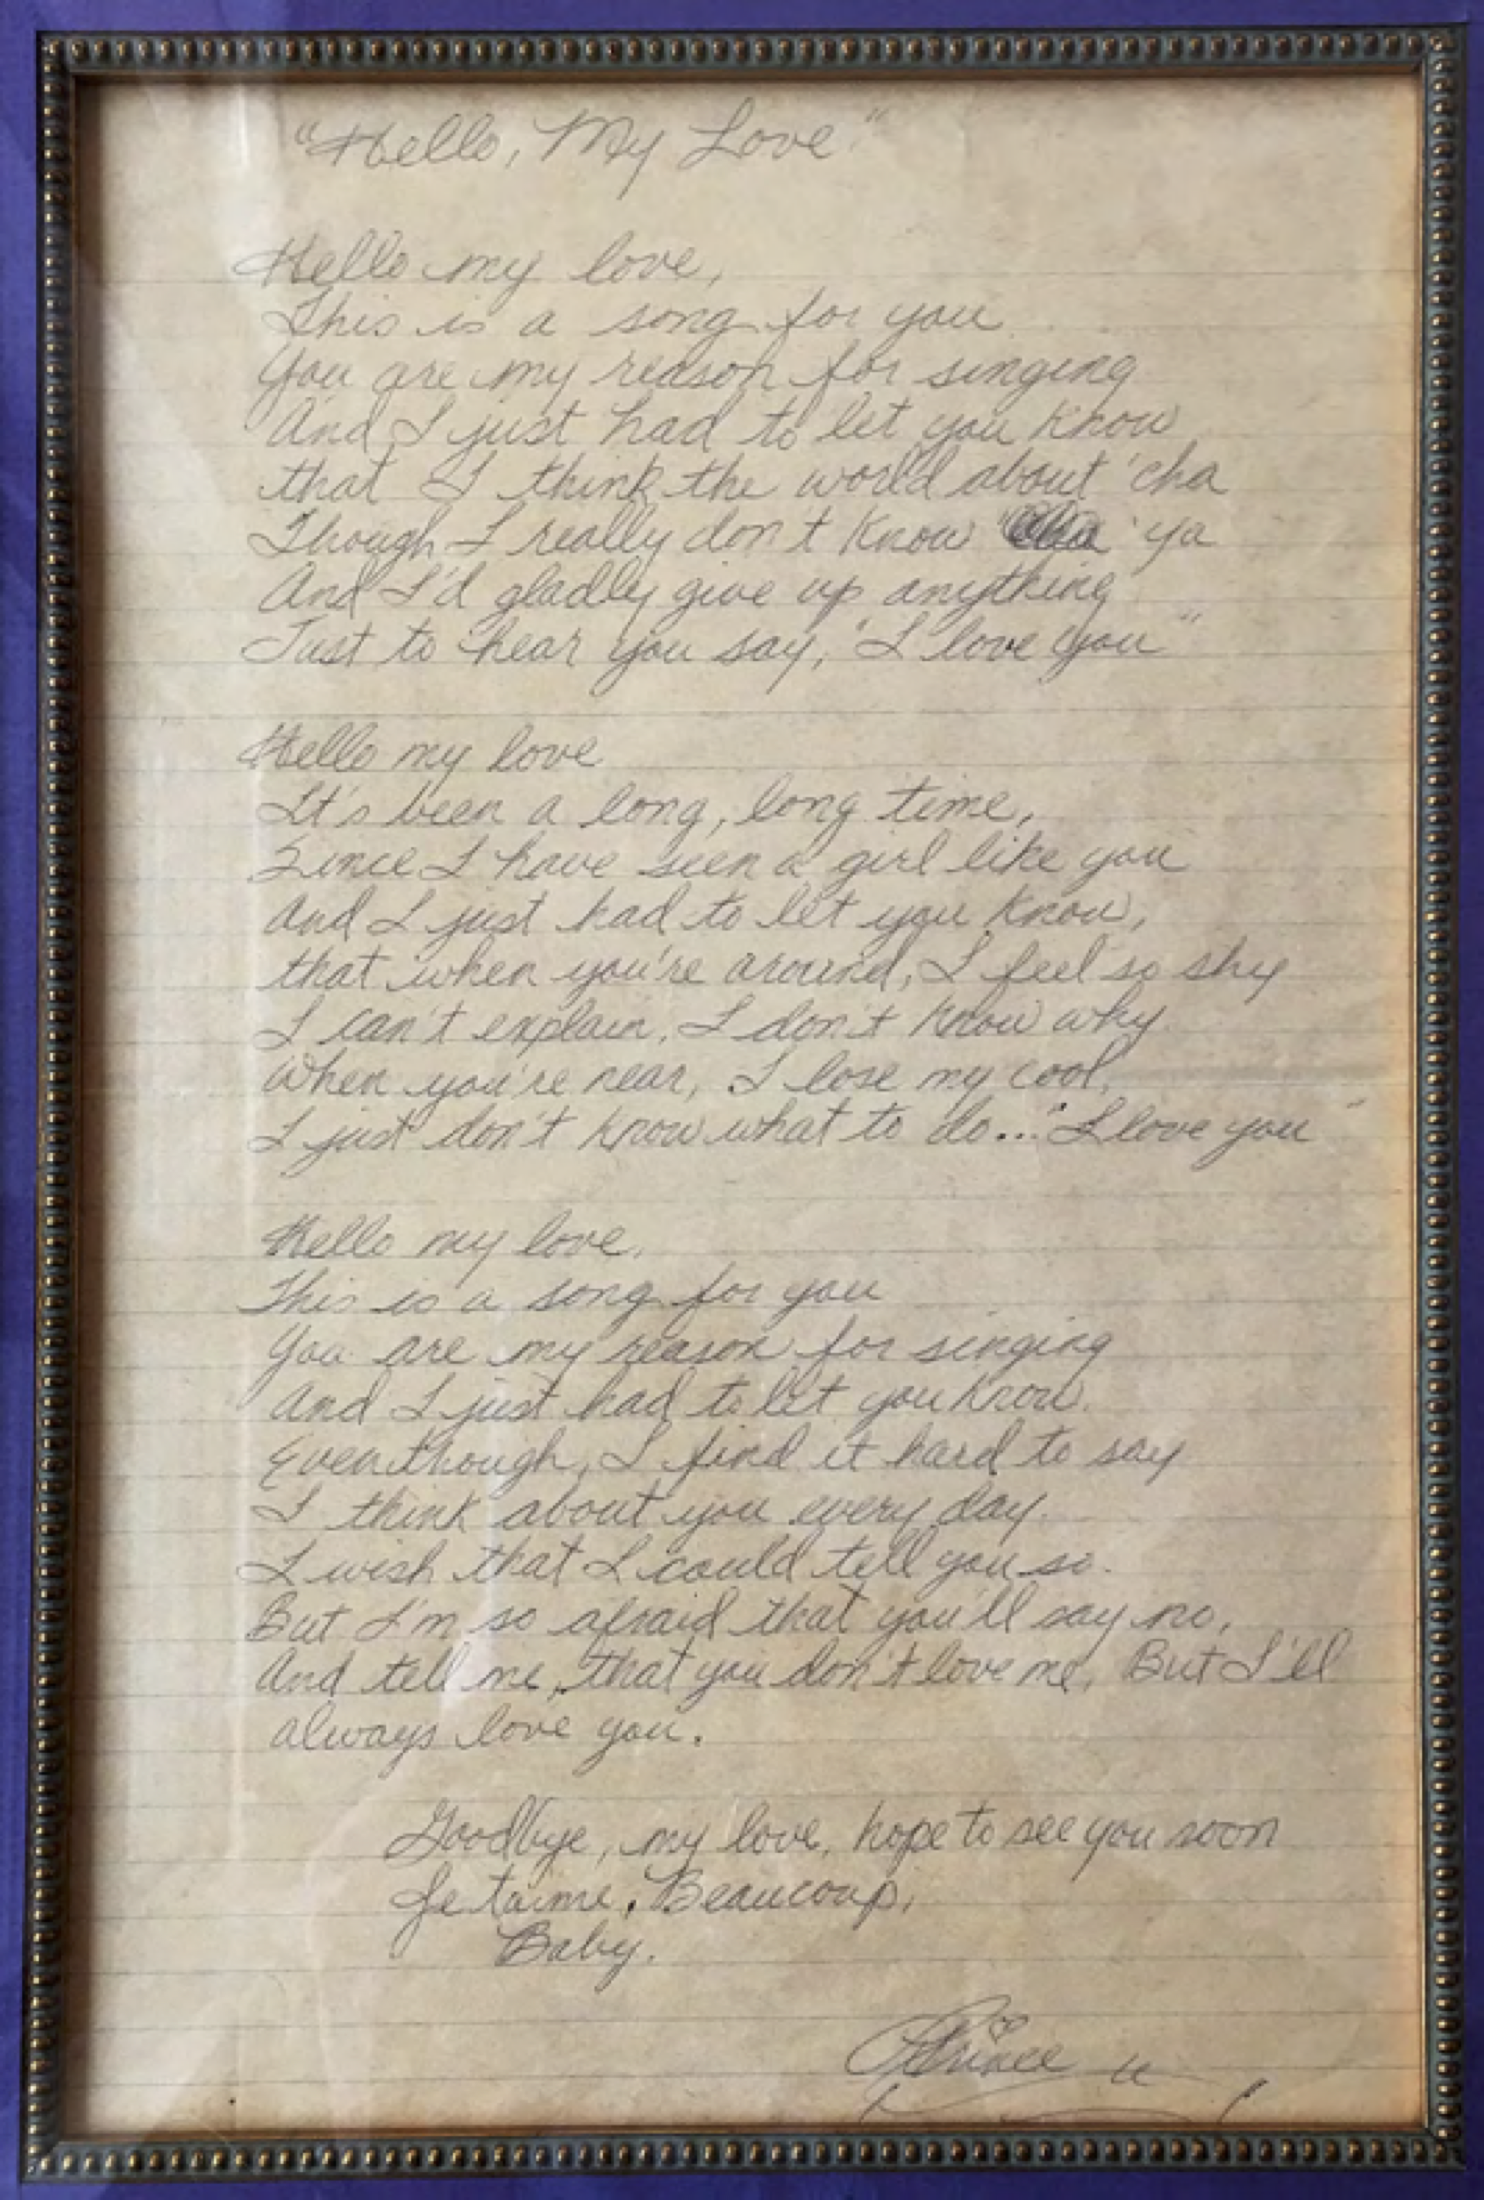 "Hello, My Love"
Hello my love,
This is a song for you
You are my reason for singing
And I just had to let you know
that I think the world about 'cha
Though I really don't know 'ya
And I'd gladly give up anything
Just to hear you say, "I love you"
Hello my love
It's been a long, long time,
Since I have seen a girl like you
And I just had to let you know,
that when you're around, I feel so shy
I can't explain, I don't know why
When you're near, I lose my cool,
I just don't know what to do... "I love you"
Hello my love,
This is a song for you
You are my reason for singing
And I just had to let you know.
Eventhough, I find it hard to say
I think about you every day.
I wish that I could tell you so.
But I'm so afraid that you'll say no,
And tell me, that you don't love me, But I'll
always love you.
Goodbye, my love, hope to see you soon
Je taime. Beaucoup,
Baby.
Prince